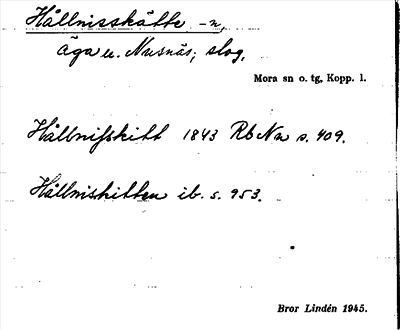 Hållnisskätte -n,
äga u. Nusnäs; slog.
Mora sn o. tg, Kopp. l.
Hållnisskitt 1843 RbNa s. 409.
Hållniskitten ib. s. 953.
Bror Lindén 1945.